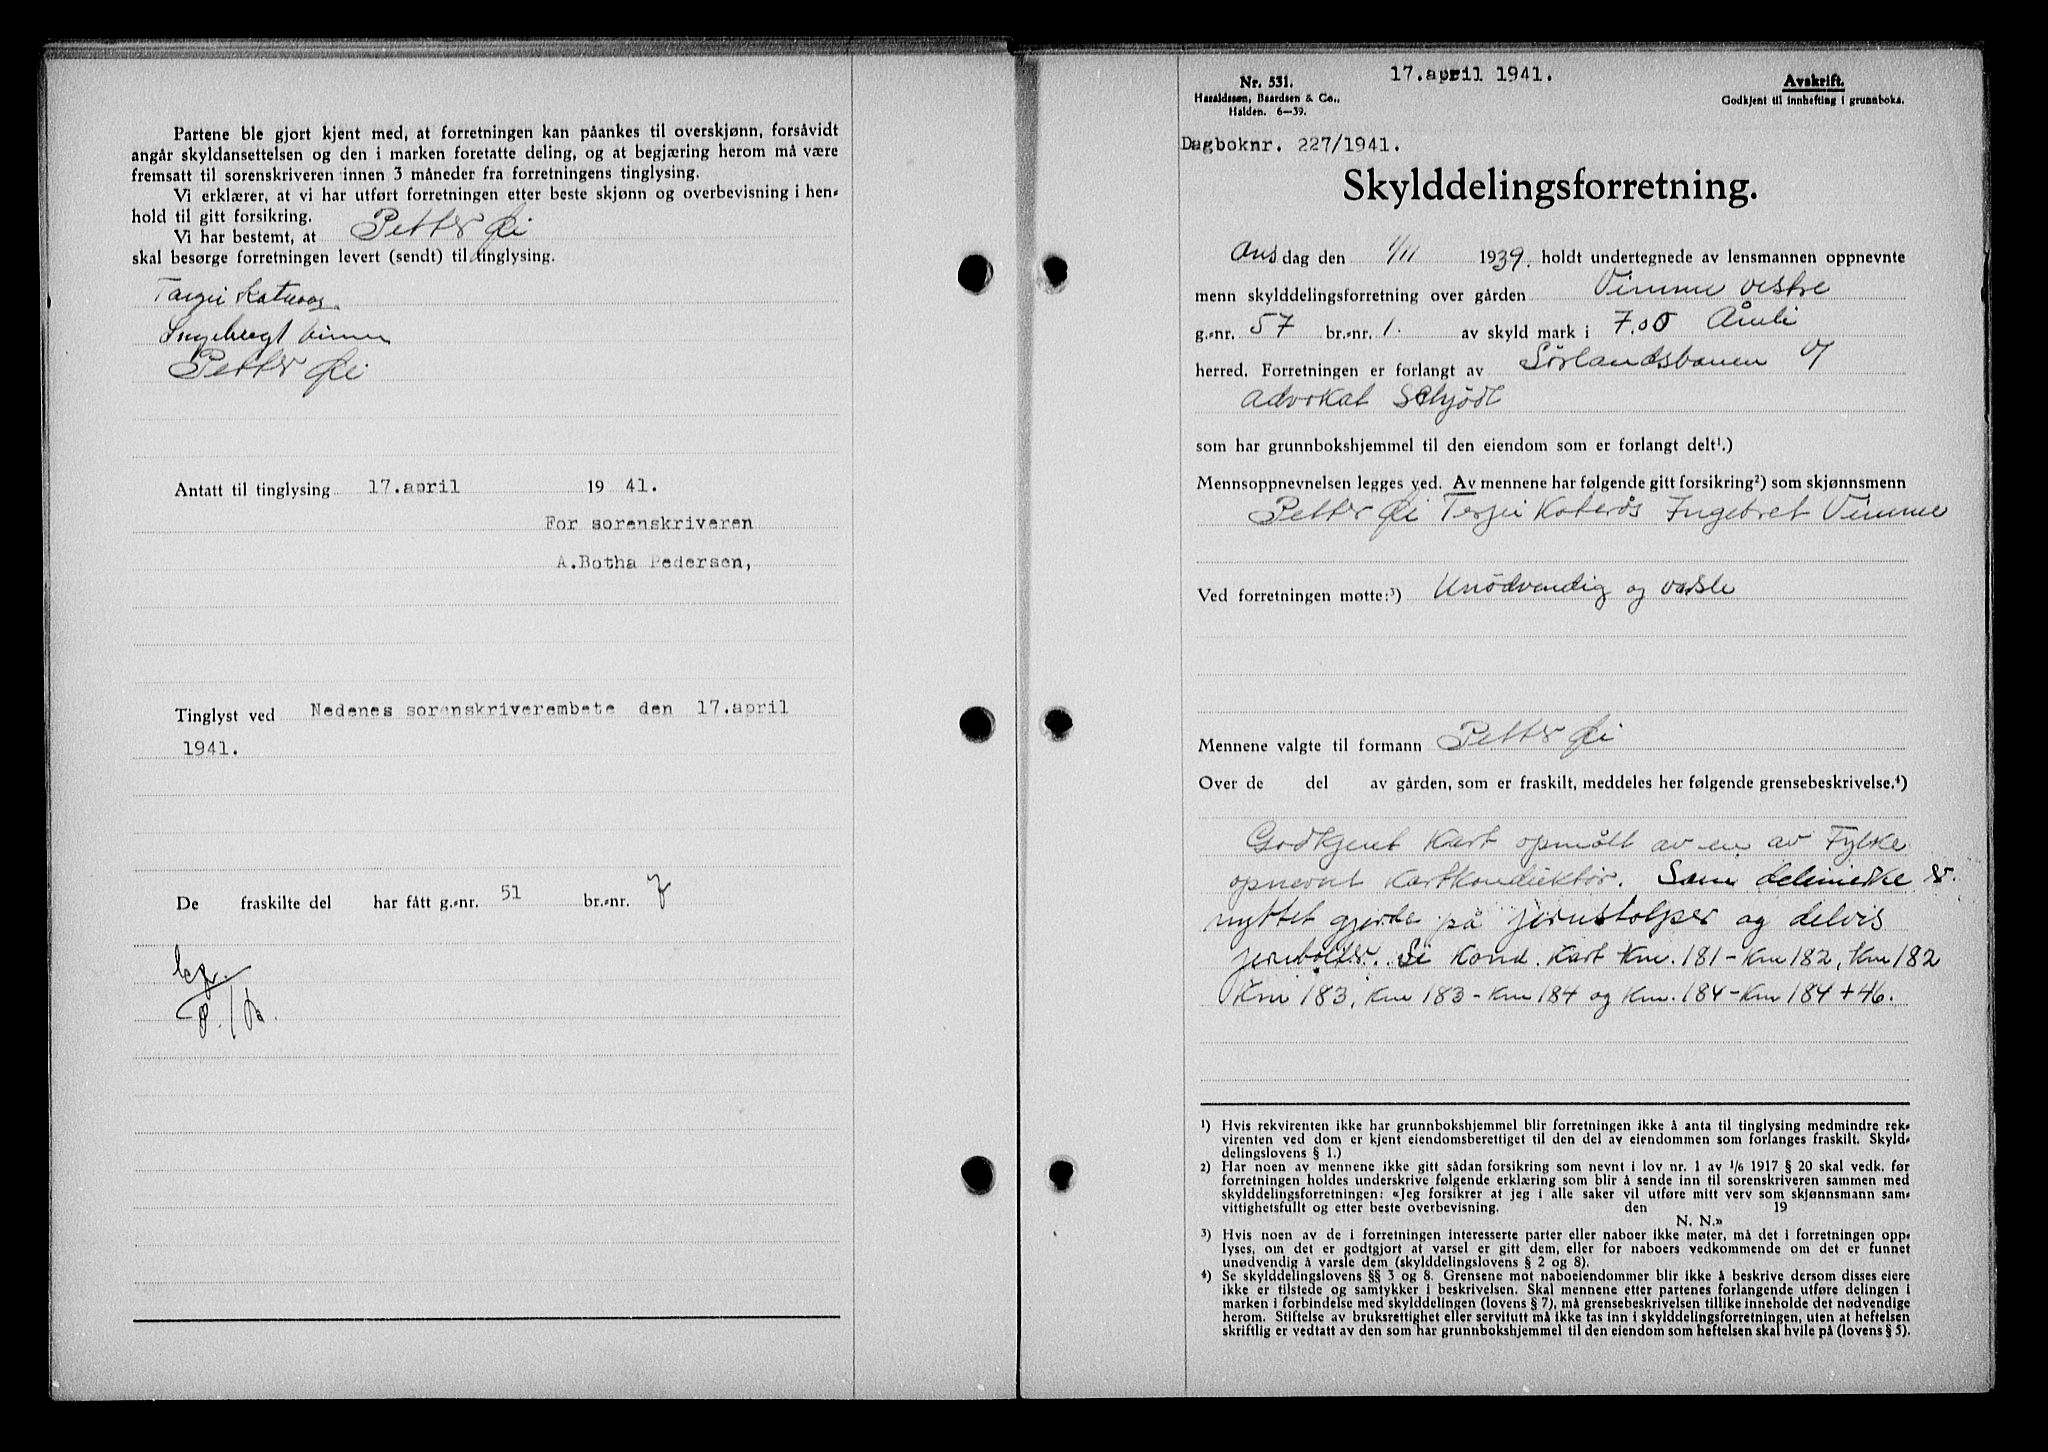 Partene ble gjort kjent med, at forretningen kan påankes til overskjønn, forsåvidt
angår skyldansettelsen og den i marken foretatte deling, og at begjæring herom må være
fremsatt til sorenskriveren innen 3 måneder fra forretningens tinglysing.
Vi erklærer, at vi har utført forretningen etter beste skjønn og overbevisning i hen-
hold til gitt forsikring.
Vi har bestemt, at Petter Øi
skal besørge forretningen levert (sendt) til tinglysing.
Petter Øi
Antatt til tinglysing 17.april 19 41.
For sorenskriveren
A.Botha Pedersen,
Tinglyst ved Nedenes sorenskriverembete den 17.april
1941.
De fraskilte del har fått g.-nr. 51 br.-nr. 7
Nr. 531.
Haraldssøn, Baardsen & Co.,
Halden. 6—39.
17.april 1941.
Avskrift.
Godkjent til innhefting i grunnboka.
Dagboknr. 227/1941.
Skylddelingsforretning.
Ons dag den 1/11 1939. holdt undertegnede av lensmannen oppnevnte
menn skylddelingsforretning over gården Vimme vestre
g.-nr. 57 br.-nr. 1. av skyld mark i 7.00 Åmli
herred. Forretningen er forlangt av Sørlandsbanen v/
Advokat Schjødt
som har grunnbokshjemmel til den eiendom som er forlangt delt¹.)
Mennsoppnevnelsen legges ved. Av mennene har følgende gitt forsikring²) som skjønnsmenn
Petter Øi Terjei Katerås Ingebret Vimme
Ved forretningen møtte:³) Unödvendig og varsle
Mennene valgte til formann Petter Øi
Over de del av gården, som er fraskilt, meddeles her følgende grensebeskrivelse.⁴)
Godkjent Kart opmålt av en av Fylke
opnevnt Kartkonduktör. Som delemerke er
nyttet gjerde på jernstolper og delvis
jernbolter. Se Kond. Kart Km. 181 - Km 182, Km 182
Km 183, Km 183 - Km 184 og Km. 184 - Km 184 + 46.
¹) Hvis rekvirenten ikke har grunnbokshjemmel blir forretningen ikke å anta til tinglysing medmindre rek-
virenten ved dom er kjent eiendomsberettiget til den del av eiendommen som forlanges fraskilt. Skyld-
delingslovens § 1.)
²) Har noen av mennene ikke gitt sådan forsikring som nevnt i lov nr. 1 av 1/6 1917 § 20 skal vedk. før
forretningen holdes underskrive følgende erklæring som blir å sende inn til sorenskriveren sammen med
skylddelingsforretningen: «Jeg forsikrer at jeg i alle saker vil utføre mitt verv som skjønnsmann sam-
vittighetsfullt og etter beste overbevisning. den 19
N. N.»
³) Hvis noen av de i forretningen interesserte parter eller naboer ikke møter, må det i forretningen opp-
lyses, om det er godtgjort at varsel er gitt dem, eller for naboers vedkommende om det er funnet
unødvendig å varsle dem (skylddelingslovens § 2 og 8).
⁴) Se skylddelingslovens §§ 3 og 8. Grensene mot naboeiendommer blir ikke å beskrive dersom disses eiere
ikke er tilstede og samtykker i beskrivelsen. Skal mennene etter partenes forlangende utføre delingen i
marken i forbindelse med skylddelingen (lovens § 7), må grensebeskrivelsen tillike inneholde det nødvendige
herom. Stiftelse av bruksrettighet eller servitutt må ikke tas inn i skylddelingsforretningen, uten at heftelsen
skriftlig er vedtatt av den som har grunnbokshjemmel til den eiendom som heftelsen skal hvile på (lovens § 5).